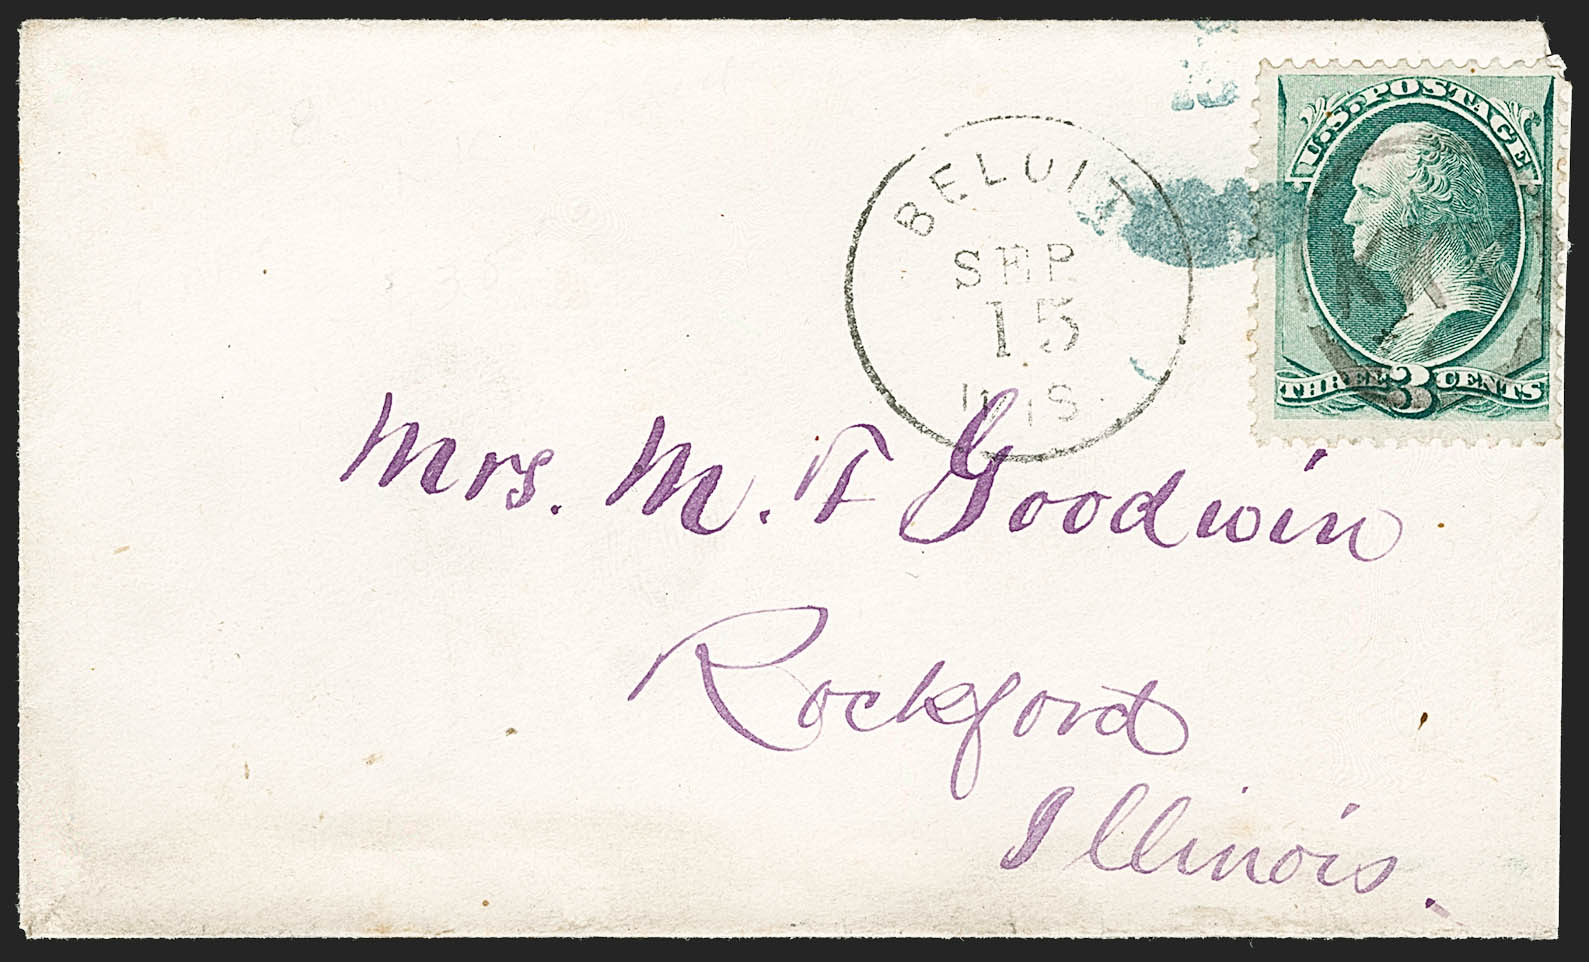 U.S. POSTAGE
BELOIT
SEP
15
WIS.
THREE 3 CENTS
Mrs. M. F Goodwin
Rockford
Illinois.